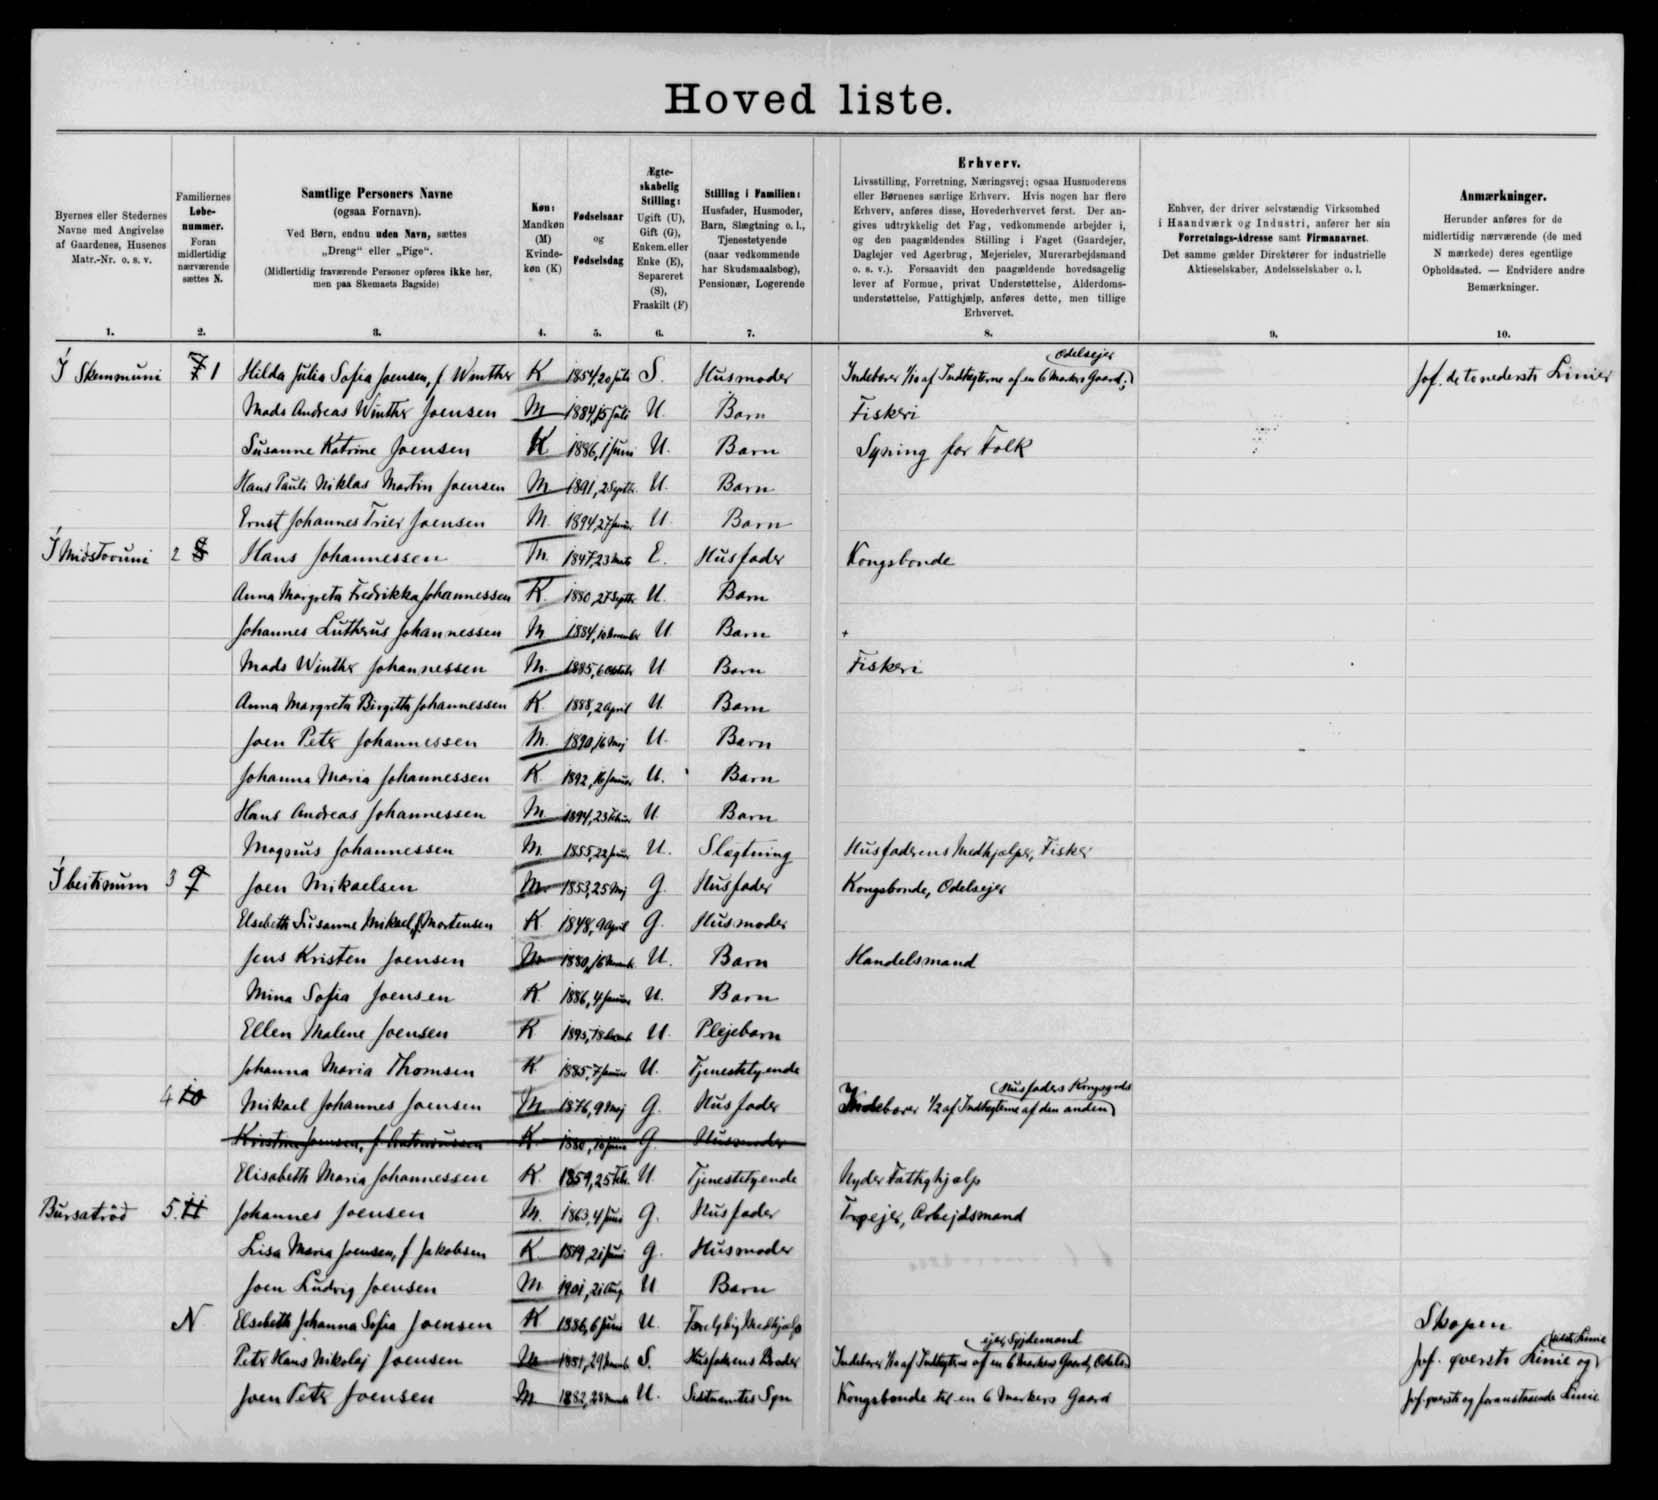 Hoved liste.
Byernes eller Stedernes Navne med Angivelse af Gaardenes, Husenes Matr.-Nr. o. s. v.
Familiernes Løbenummer. Foran midlertidig nærværende sættes N.
Samtlige Personers Navne
(ogsaa Fornavn).
Ved Børn, endnu uden Navn, sættes
„Dreng" eller „Pige".
(Midlertidig fraværende Personer opføres ikke her,
men paa Skemaets Bagside)
Køn: Mandkøn (M) Kvindekøn (K)
Fødselsaar og Fødselsdag
Ægteskabelig Stilling: Ugift (U), Gift (G), Enkem. eller Enke (E), Separeret (S), Fraskilt (F)
Stilling i Familien: Husfader, Husmoder, Barn, Slægtning o. l., Tjenestetyende (naar vedkommende har Skudsmaalsbog), Pensionær, Logerende
Erhverv.
Livsstilling, Forretning, Næringsvej; ogsaa Husmoderens
eller Børnenes særlige Erhverv. Hvis nogen har flere
Erhverv, anføres disse, Hovederhvervet først. Der an-
gives udtrykkelig det Fag, vedkommende arbejder i,
og den paagældendes Stilling i Faget (Gaardejer,
Daglejer ved Agerbrug, Mejerielev, Murerarbejdsmand
o. s. v.). Forsaavidt den paagældende hovedsagelig
lever af Formue, privat Understøttelse, Alderdoms-
understøttelse, Fattighjælp, anføres dette, men tillige
Erhvervet.
Enhver, der driver selvstændig Virksomhed
i Haandværk og Industri, anfører her sin
Forretnings-Adresse samt Firmanavnet.
Det samme gælder Direktører for industrielle
Aktieselskaber, Andelsselskaber o. l.
Anmærkninger.
Herunder anføres for de
midlertidig nærværende (de med
N mærkede) deres egentlige
Opholdssted. — Endvidere andre
Bemærkninger.
1. 2. 3. 4. 5. 6. 7. 8. 9. 10.
Í Skemmuni 7 1 Hilda Julia Sofia Joensen, f Winther K 1854, 20 Juli S. Husmoder Indebærer 1/10 af Indtægterne af en 6 Markers Gaard; Odelsejer Jof. de to nederste Linier
Mads Andreas Winther Joensen M 1884, 15 Juli U. Barn Fiskeri
Susanne Katrine Joensen K 1886, 1 Juni U. Barn Syning for Folk
Hans Pauli Niklas Martin Joensen M 1891, 2 Septb. U. Barn
Ernst Johannes Trier Joensen M. 1894, 27 Januar U. Barn
Í Miðstovuni 2 8 Hans Johannessen M. 1847, 23 Marts E. Husfader Kongsbonde
Anna Margreta Fredrikka Johannessen K. 1880, 27 Septbr U. Barn
Johannes Lutherus Johannessen M 1884, 10 November U. Barn +
Mads Winther Johannessen M. 1885, 6 Oktober U Barn Fiskeri
Anna Margreta Birgitta Johannessen K. 1888, 2 April U. Barn
Joen Petr Johannessen M. 1890, 16 Maj U. Barn
Johanna Maria Johannessen K. 1892, 16 Januar U. Barn
Hans Andreas Johannessen M. 1894, 23 Februar U. Barn
Magnus Johannessen M. 1855, 22 U. Slægtning Husfaderens Medhjælper, Fisker
Í heitinum 3 9 Joen Mikaelsen M. 1853, 25 Maj G. Husfader Kongsbonde, Odelsejer
Elsebeth Susanne Mikael, f. Mortensen K 1848, 9 April G. Husmoder
Jens Kristen Joensen M 1880, 16 U. Barn Handelsmand
Mina Sofia Joensen K. 1886, 4 Januar U. Barn
Ellen Malene Joensen K 1895, 18 U. Plejebarn
Johanna Maria Thomsen K 1885, 7 Januar U. Tjenestetyende
4 10 Mikael Johannes Joensen M 1876, 9 Maj G. Husfader Indebærer 1/2 af Indtægterne af den anden Husfaders Kongsgods
Kristine Joensen, f K 1880, 10 Juni G. Husmoder
Elisabeth Maria Johannessen K. 1859, 25 Febr. U. Tjenestetyende Nyder Fattighjælp
Bursatrød 5. 11 Johannes Joensen M. 1863, 4 Juni G. Husfader Træejer, Arbejdsmand
Lisa Maria Joensen, f Jakobsen K 1879, 21 Juni G. Husmoder
Joen Ludvig Joensen M 1901, 21 Aug U Barn
N Elsebeth Johanna Sofia Joensen K 1886, 6 Juni U. Foreløbig Medhjælp Skopen
Petr Hans Nikolaj Joensen M 1881, 29 S. Husfaderens Broder Indebærer 1/10 af Indtægterne af en 6 Markers Gaard, Odelsejer, Sysselmand Jof. øverste Linie og sidste Linie
Joen Petr Joensen M 1882, 28 U. Sidstnævntes Søn Kongsbonde til en 6 Markers Gaard Jof. øverste og foranstaaende Linie